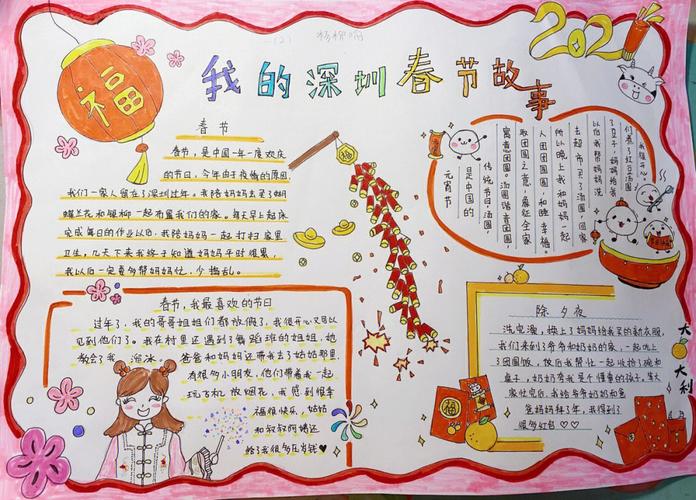 2021
我的深圳春节故事
福
春节
春节，是中国一年一度欢庆
的节日，今年由于疫情的原因，
我们一家人留在了深圳过年。我陪妈妈去买了蝴
蝶兰花和银柳一起布置我们的家。每天早上起床
完成每日的作业以后，我陪妈妈一起打扫家里
卫生，几天下来我终于知道妈妈平时很累，
我以后一定要多帮妈妈忙，少捣乱。
元宵节
是中国的
传统节日，汤圆，
寓意团圆。汤圆谐音团圆，
取团圆之意，象征全家
人团团圆圆，和睦幸福。
所以晚上我和妈妈一起
去超市买了汤圆，回家
以后我帮妈妈洗
了豆子，妈妈给我
们煮了红豆汤圆
我很开心。
春节，我最喜欢的节日
过年了，我的哥哥姐姐们都放假了，我很开心又可以
见到他们了。我在村里还遇到了舞蹈班的姐姐，她
教会了我溜冰。爸爸和妈妈还带我去了奶奶那里，
有很多小朋友，他们带着我一起
玩，放烟花，我感到很幸
福很快乐，姑姑
和叔叔阿姨还
给了我很多压岁钱♥
除夕夜
洗完澡，换上了妈妈给我买的新衣服，
我们来到了爷爷和奶奶的家，一起吃上
了团圆饭，饭后我帮忙一起收拾了碗和
桌子，奶奶夸我是个懂事的孩子，等大
家忙完后，我给爷爷奶奶和爸
爸妈妈拜了年，我得到了
很多红包♡♡
福
大吉大利